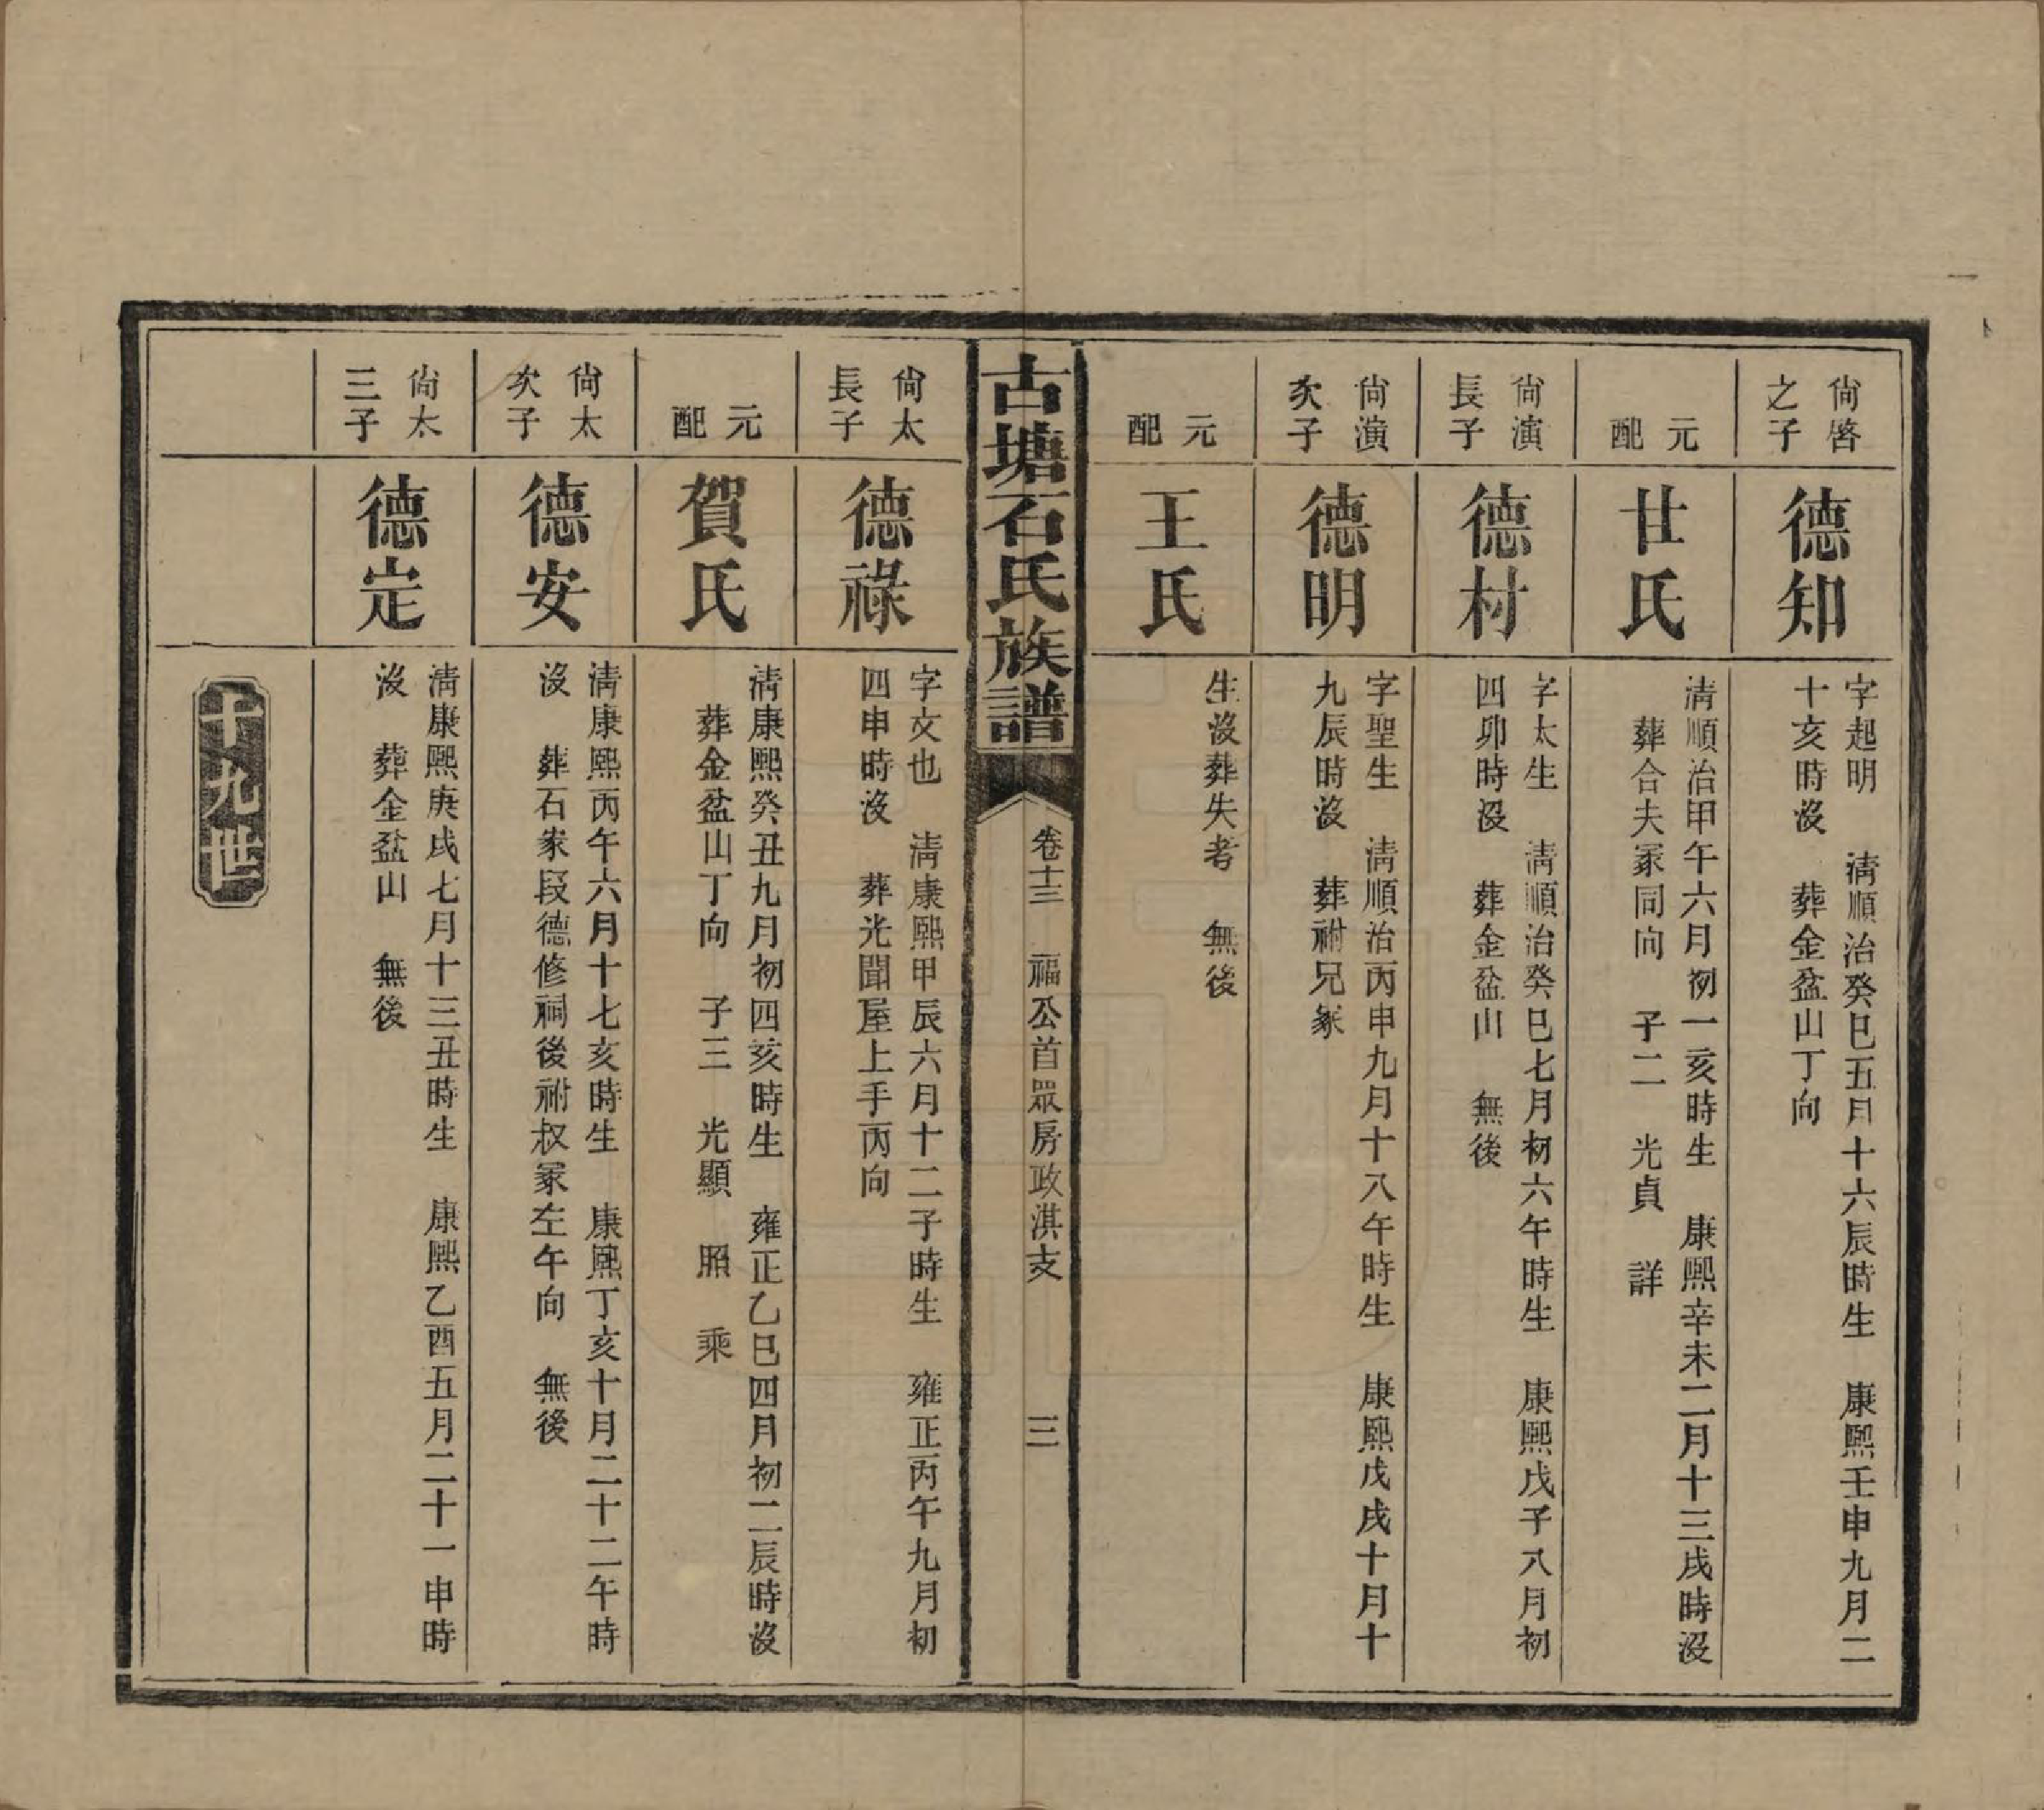 尙啓
之子
德知
字起明　淸順治癸巳五月十六辰時生　康熙壬申九月二
十亥時沒　葬金盆山丁向
元
配
廿氏
淸順治甲午六月初一亥時生　康熙辛未二月十三戌時沒
葬合夫冢同向　子二　光貞　詳
尙演
長子
德村
字太生　淸順治癸巳七月初六午時生　康熙戊子八月初
四卯時沒　葬金盆山　無後
尙演
次子
德明
字聖生　淸順治丙申九月十八午時生　康熙戊戌十月十
九辰時沒　葬祔兄冢
元
配
王氏
生沒葬失考　無後
古塘石氏族譜
卷十三　福公首眾房政淇支　三
尙太
長子
德祿
字文也　淸康熙甲辰六月十二子時生　雍正丙午九月初
四申時沒　葬光聞屋上手丙向
元
配
賀氏
淸康熙癸丑九月初四亥時生　雍正乙巳四月初二辰時沒
葬金盆山丁向　子三　光顯　照　乘
尙太
次子
德安
淸康熙丙午六月十七亥時生　康熙丁亥十月二十二午時
沒　葬石家段德修祠後祔叔冢左午向　無後
尙太
三子
德定
淸康熙庚戌七月十三丑時生　康熙乙酉五月二十一申時
沒　葬金盆山　無後
十九世